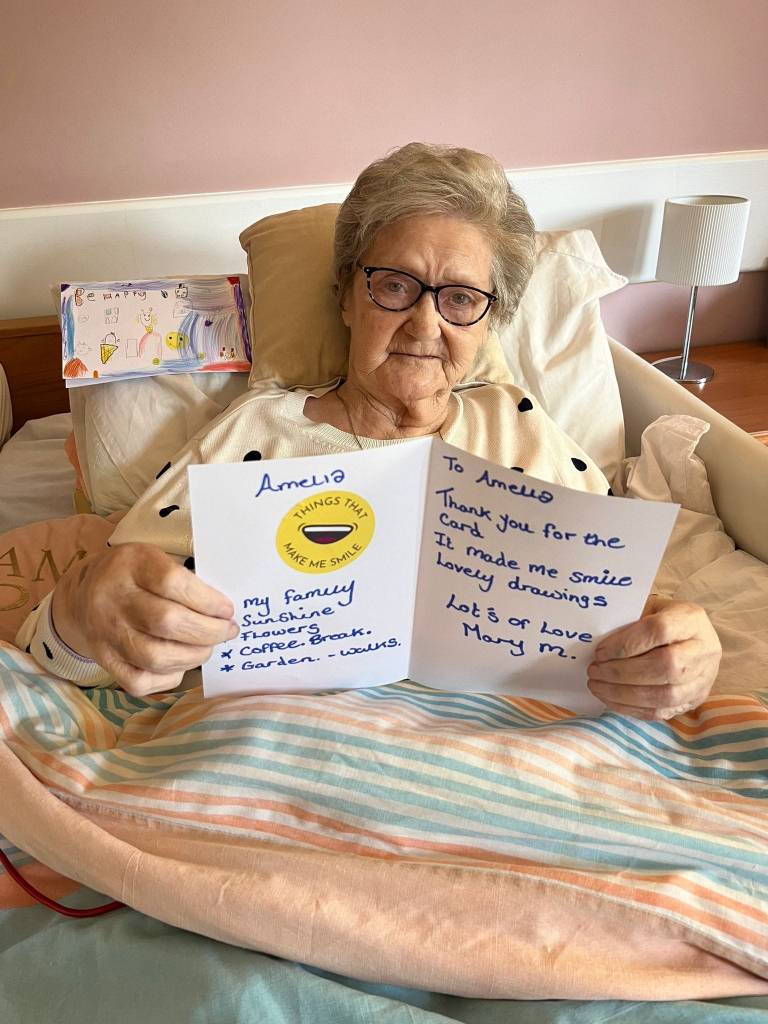 Be HAPPY
AM
Amelia
THINGS THAT
MAKE ME SMILE
My family
Sunshine
Flowers
* Coffee. Break.
* Garden. - walks.
To Amelia
Thank you for the
Card
It made me smile
Lovely drawings
Lot's of Love
Mary M.